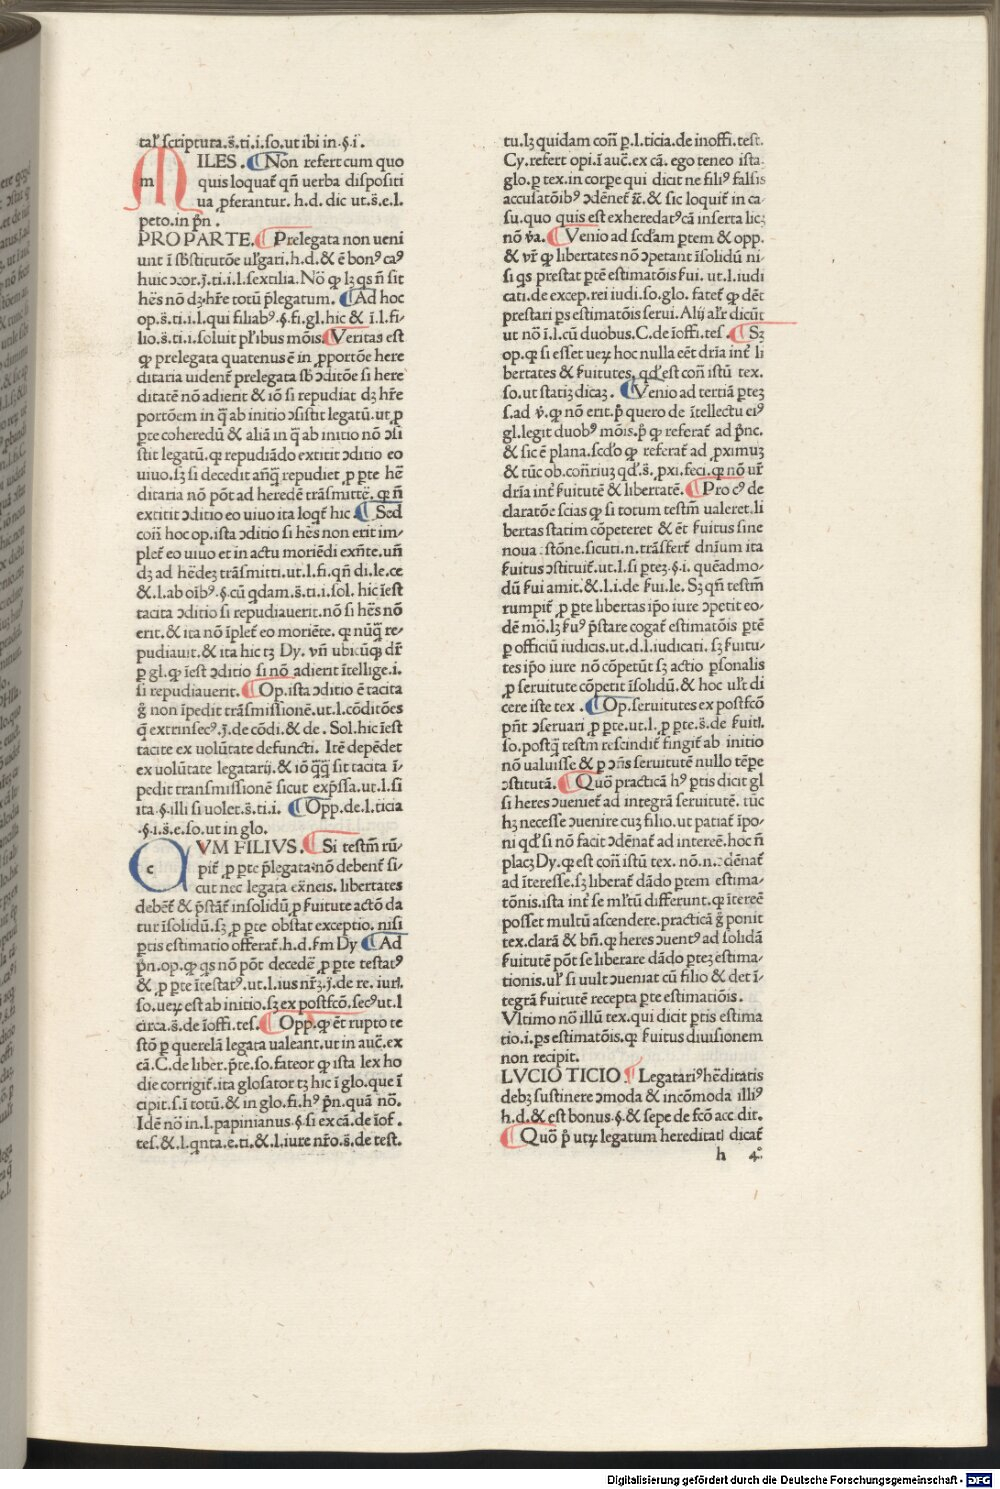 tal' scriptura.s̄.ti.i.so.ut ibi in.§.i.
MILES. ¶ Non refert cum quo
m quis loquat̄ qn̄ uerba dispositi
ua ꝓferantur. h.d. dic ut.s̄.e.l.
peto.in p̄n.
PRO PARTE. ¶ Prelegata non ueni
unt ī sb̄stitutōe ul'gari.h.d.& ē bonꝰ caꝰ
huic ↄↄor.j̄.ti.i.l.sextilia. Nō ꝙ lꝫ qs n̄ sit
hēs nō dꝫ.hr̄e totū p̄legatum. ¶ Ad hoc
op.s̄.ti.i.l.qui filiabꝰ.§.fi.gl.hic & ī.l.fi-
lio.s̄.ti.i.soluit pl'ibus mōis. ¶ Veritas est
ꝙ prelegata quatenus ē in ꝓportōe here
ditaria uident̄ prelegata sb̄ ↄditōe si here
ditatē nō adierit & iō si repudiat dꝫ hr̄e
portōem in q̄ ab initio ↄsistit legatū.ut ꝓ
p̱te coheredū & aliā in q̄ ab initio nō ↄsi
stit legatū.q̱ repudiādo extitit ↄditio eo
uiuo.sꝫ si decedit an̄q̄ repudiet ꝓ p̱te hē
ditaria nō pōt ad heredē trāsmittē. q̱ n̄
extitit ↄditio eo uiuo ita loqt̄ hic ¶ Sed
con̄ hoc op.ista ↄditio si hēs non erit im-
plet̄ eo uiuo et in actu moriēdi exn̄te.un̄
dꝫ ad hēdeꝫ trāsmitti.ut.l.fi.qn̄ di.le.ce
&.l.ab oībꝰ.§.cū qdam.s̄.ti.i.sol. hic īest
tacita ↄditio si repudiauerit.nō si hēs nō
erit.& ita nō īplet̄ eo moriēte. q̱ nūq̄ re-
pudiauit.& ita hic tꝫ Dy. vn̄ ubicūqꝫ dr̄
p̱ gl.ꝙ īest ↄditio si nō adierit ītellige.i.
si repudiauerit. ¶ Op.ista ↄditio ē tacita
g̊ non īpedit trāsmissionē.ut.l.cōditōes
q̄ extrinsecꝰ.j̄.de cōdi.& de. Sol.hic īest
tacite ex uolūtate defuncti. Itē depēdet
ex uolūtate legatarij.& iō q̄q̄ sit tacita ī-
pedit transmissionē sicut exp̄ssa.ut.l.si
ita.§.illi si uolet.s̄.ti.i. ¶ Opp.de.l.ticia
.§.i.s̄.e.so.ut in glo.
CVM FILIVS. ¶ Si testm̄ rū-
c pit̄ ꝓ p̱te p̄legata nō debent̄ si-
cut nec legata ex̄neis. libertates
debēt̄ & p̄stāt̄ insolidū ꝓ ẜuitute actō da
tur īsolidū.sꝫ ꝓ p̱te obstat exceptio. nisi
p̱tis estimatio offerat̄.h.d.ẜm Dy ¶ Ad
p̄n.op.ꝙ qs nō pōt decedē ꝓ p̱te testatꝰ
& ꝓ p̱te ītestatꝰ.ut.l.ius nr̄ꝫ.j̄.de re. iur̄.
so.ueꝝ est ab initio.sꝫ ex postfcō.secꝰ ut.l
circa.s̄.de īoffi.tes. ¶ Opp.ꝙ ēt rupto te
stō p̱ querelā legata ualeant.ut in auc̄.ex
cā.C.de liber.p̄te.so.fateor ꝙ ista lex ho
die corrigit̄.ita glosator tꝫ hic ī glo.que ī
cipit.s.ī totū.& in glo.fi.hꝰ p̄n.quā nō.
Idē nō in.l.papinianus.§.si ex cā.de īof.
tes.&.l.qnta.e.ti.&.l.iure nr̄o.s̄.de test.
tu.lꝫ quidam con̄ p̱.l.ticia.de inoffi.test.
Cy.refert opi.ī auc̄.ex cā. ego teneo ista
glo.p̱ tex.in corp̱e qui dicit ne filiꝰ falsis
accusatōibꝰ ↄdēnet̄ &c̄.& sic loquit̄ in ca-
su.quo quis est exheredatꝰ cā inserta licꝫ
nō v̄a. ¶ Venio ad scd̄am p̱tem & opp.
& vr̄ ꝙ libertates nō ↄpetant īsolidū ni-
si qs prestat p̱tē estimatōis ẜui. ut.l.iudi
cati.de excep.rei iudi.so.glo. fatet̄ ꝙ dēt
prestari p̱s estimatōis serui. Alij al'r dicūt
ut nō ī.l.cū duobus.C.de īoffi.tes. ¶ Sꝫ
op.ꝙ si esset ueꝝ hoc nulla eēt dr̄ia int̄ li
bertates & ẜuitutes. qd' est con̄ istū tex.
so.ut statiꝫ dicaꝫ. ¶ Venio ad tertiā p̱teꝫ
s.ad v̄.ꝙ nō erit.p̄ quero de ītellectu eiꝰ
gl.legit duobꝰ mōis.p̄ ꝙ referat̄ ad p̄nc.
& sic ē plana.scd̄o ꝙ referat̄ ad ꝓximuꝫ
& tūc ob.con̄riuꝫ qd'.s̄. ꝓxi.feci.ꝙ nō ur̄
dr̄ia int̄ ẜuitutē & libertatē. ¶ Pro cꝰ de
claratōe scias ꝙ si totum testm̄ ualeret.li
bertas statim cōpeteret & ēt ẜuitus sine
noua stōne.sicuti.n.trāsfert̄ dn̄ium ita
ẜuitus ↄstituit̄.ut.l.si p̱teꝫ.§.i. quēadmo-
dū ẜui amit.&.l.i.de ẜui.le. Sꝫ qn̄ testm̄
rumpit̄ ꝓ p̱te libertas ip̄o iure ↄpetit eo-
dē mō.lꝫ ẜuꝰ p̄stare cogat̄ estimatōis p̱tē
p̱ officiū iudicis.ut.d.l.iudicati. sꝫ ẜuitu-
tes ip̄o iure nō cōpetūt sꝫ actio p̱sonalis
ꝓ seruitute cōpetit īsolidū.& hoc ul't di
cere iste tex. ¶ Op.seruitutes ex postfcō
pn̄t ↄseruari ꝓ p̱te.ut.l. ꝓ p̱te.s̄.de ẜuit̄.
so.postq̄ testm̄ rescindit̄ fingit̄ ab initio
nō ualuisse & p̱ ↄn̄s seruitutē nullo tēpe
ↄstitutā. ¶ Quō practicā hꝰ p̱tis dicit gl
si heres ↄueniet̄ ad integrā seruitutē. tūc
hꝫ necesse ↄuenire cuꝫ filio.ut patiat̄ īpo-
ni qd' si nō facit ↄdēnat̄ ad intereē.hoc n̄
placꝫ Dy.q̱ est con̄ istū tex. nō.n.ↄdēnat̄
ad īteresse.sꝫ liberat̄ dādo p̱tem estima-
tōnis.ista int̄ se ml'tū differunt.q̱ ītereē
posset multū ascendere.practicā g̊ ponit
tex.clarā & bn̄.ꝙ heres ↄuentꝰ ad solidā
ẜuitutē pōt se liberare dādo p̱teꝫ estima-
tionis.ul' si uult ↄueniat cū filio & det ī-
tegrā ẜuitutē recepta p̱te estimatiōis.
Vltimo nō illū tex.qui dicit p̱tis estima
tio.i.p̱s estimatōis.q̱ ẜuitus diuisionem
non recipit.
LVCIO TICIO ¶ Legatariꝰ hēditatis
debꝫ sustinere ↄmoda & incōmoda illiꝰ
h.d.& est bonus.§.& sepe de fcō acc̄dit.
¶ Quō p̄ utꝝ legatum hereditati dicat̄
h 4
Digitalisierung gefördert durch die Deutsche Forschungsgemeinschaft - DFG